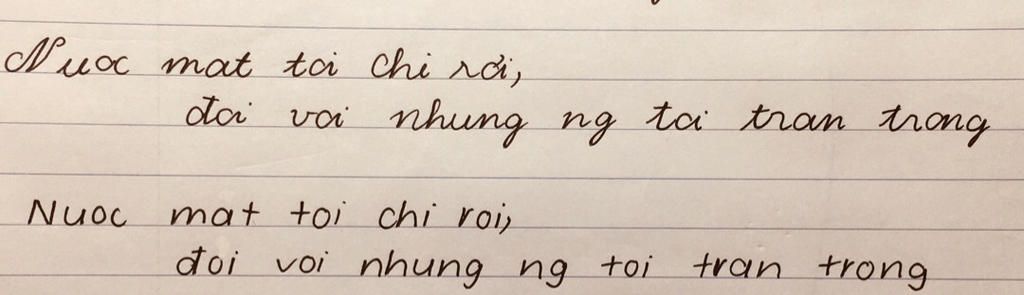 Nuoc mat toi chi rơi,
đoi voi nhung ng toi tran trong
Nuoc mat toi chi roi,
đoi voi nhung ng toi tran trong